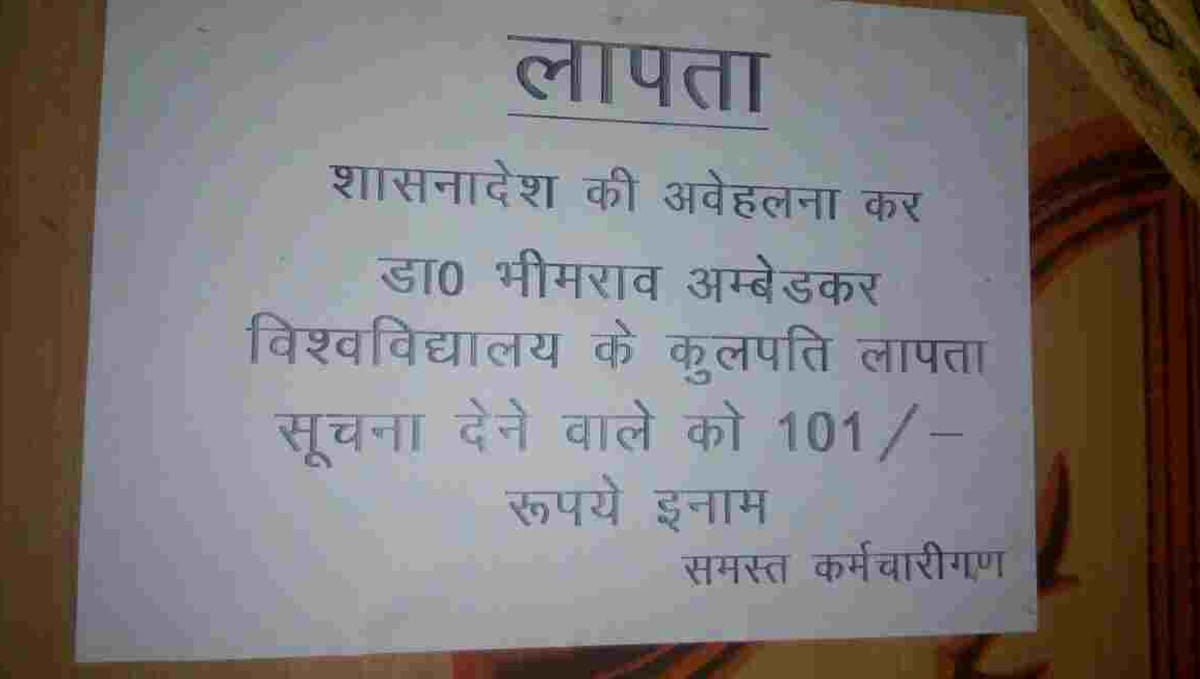 लापता
शासनादेश की अवेहलना कर
डा0 भीमराव अम्बेडकर
विश्वविद्यालय के कुलपति लापता
सूचना देने वाले को 101/–
रूपये इनाम
समस्त कर्मचारीगण